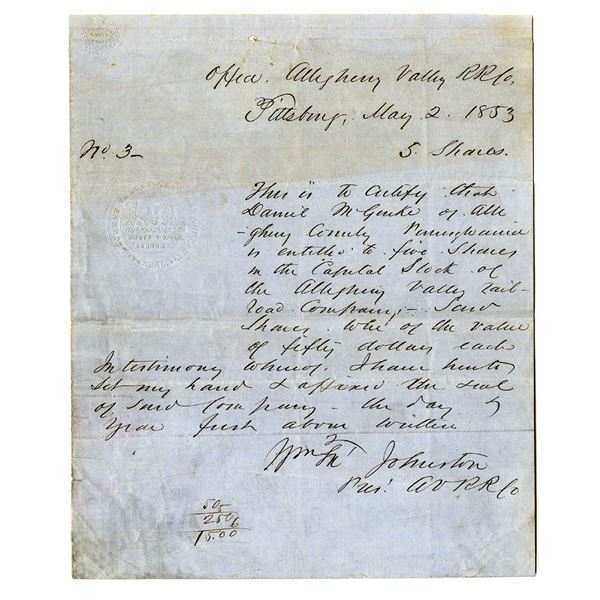 Office. Allegheny Valley RR Co,
Pittsburg, May 2. 1853
No 3-
5 Shares.
This is to certify that
Daniel McGuike of Alle
-gheny County Pennsylvania
is entitled to five Shares
in the Capital Stock of
the Allegheny Valley rail-
road Company,- Said
Shares of the value
of fifty dollars each
In testimony whereof. I have hereto
Set my hand & affixed the seal
of Said Company - the day &
Year first above written
Wm F Johnston
Pres! AVRR Co
50
250
15.00